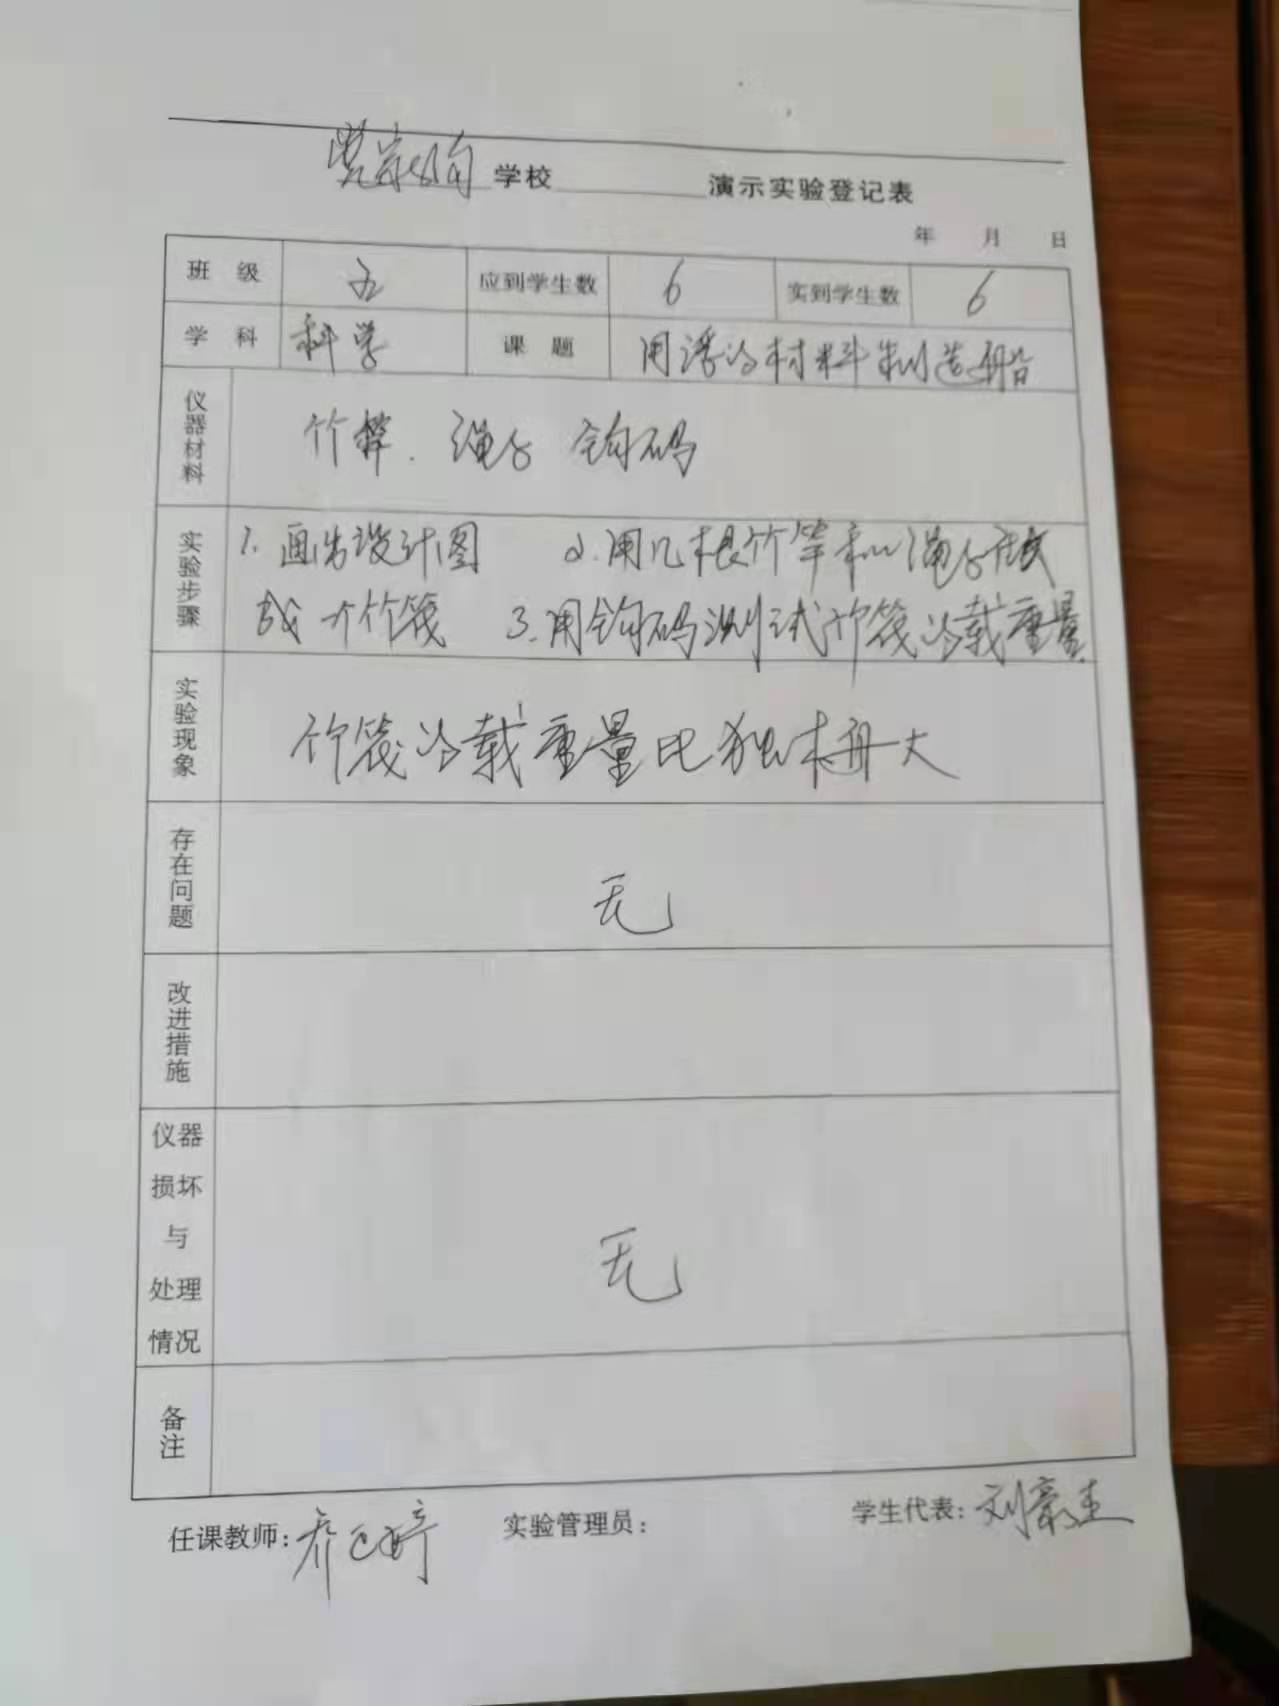 学校 演示实验登记表
年 月 日
班 级 五 应到学生数 6 实到学生数 6
学 科 科学 课 题 用浮的材料制造船
仪器材料 竹竿. 绳子 钩码
实验步骤 1. 画出设计图 2. 用几根竹竿和绳子做
成一个竹筏 3. 用钩码测试竹筏的载重量
实验现象 竹筏的载重量比独木舟大
存在问题 无
改进措施
仪器
损坏
与
处理
情况
无
备注
任课教师: 乔 婷 实验管理员: 学生代表: 刘豪杰